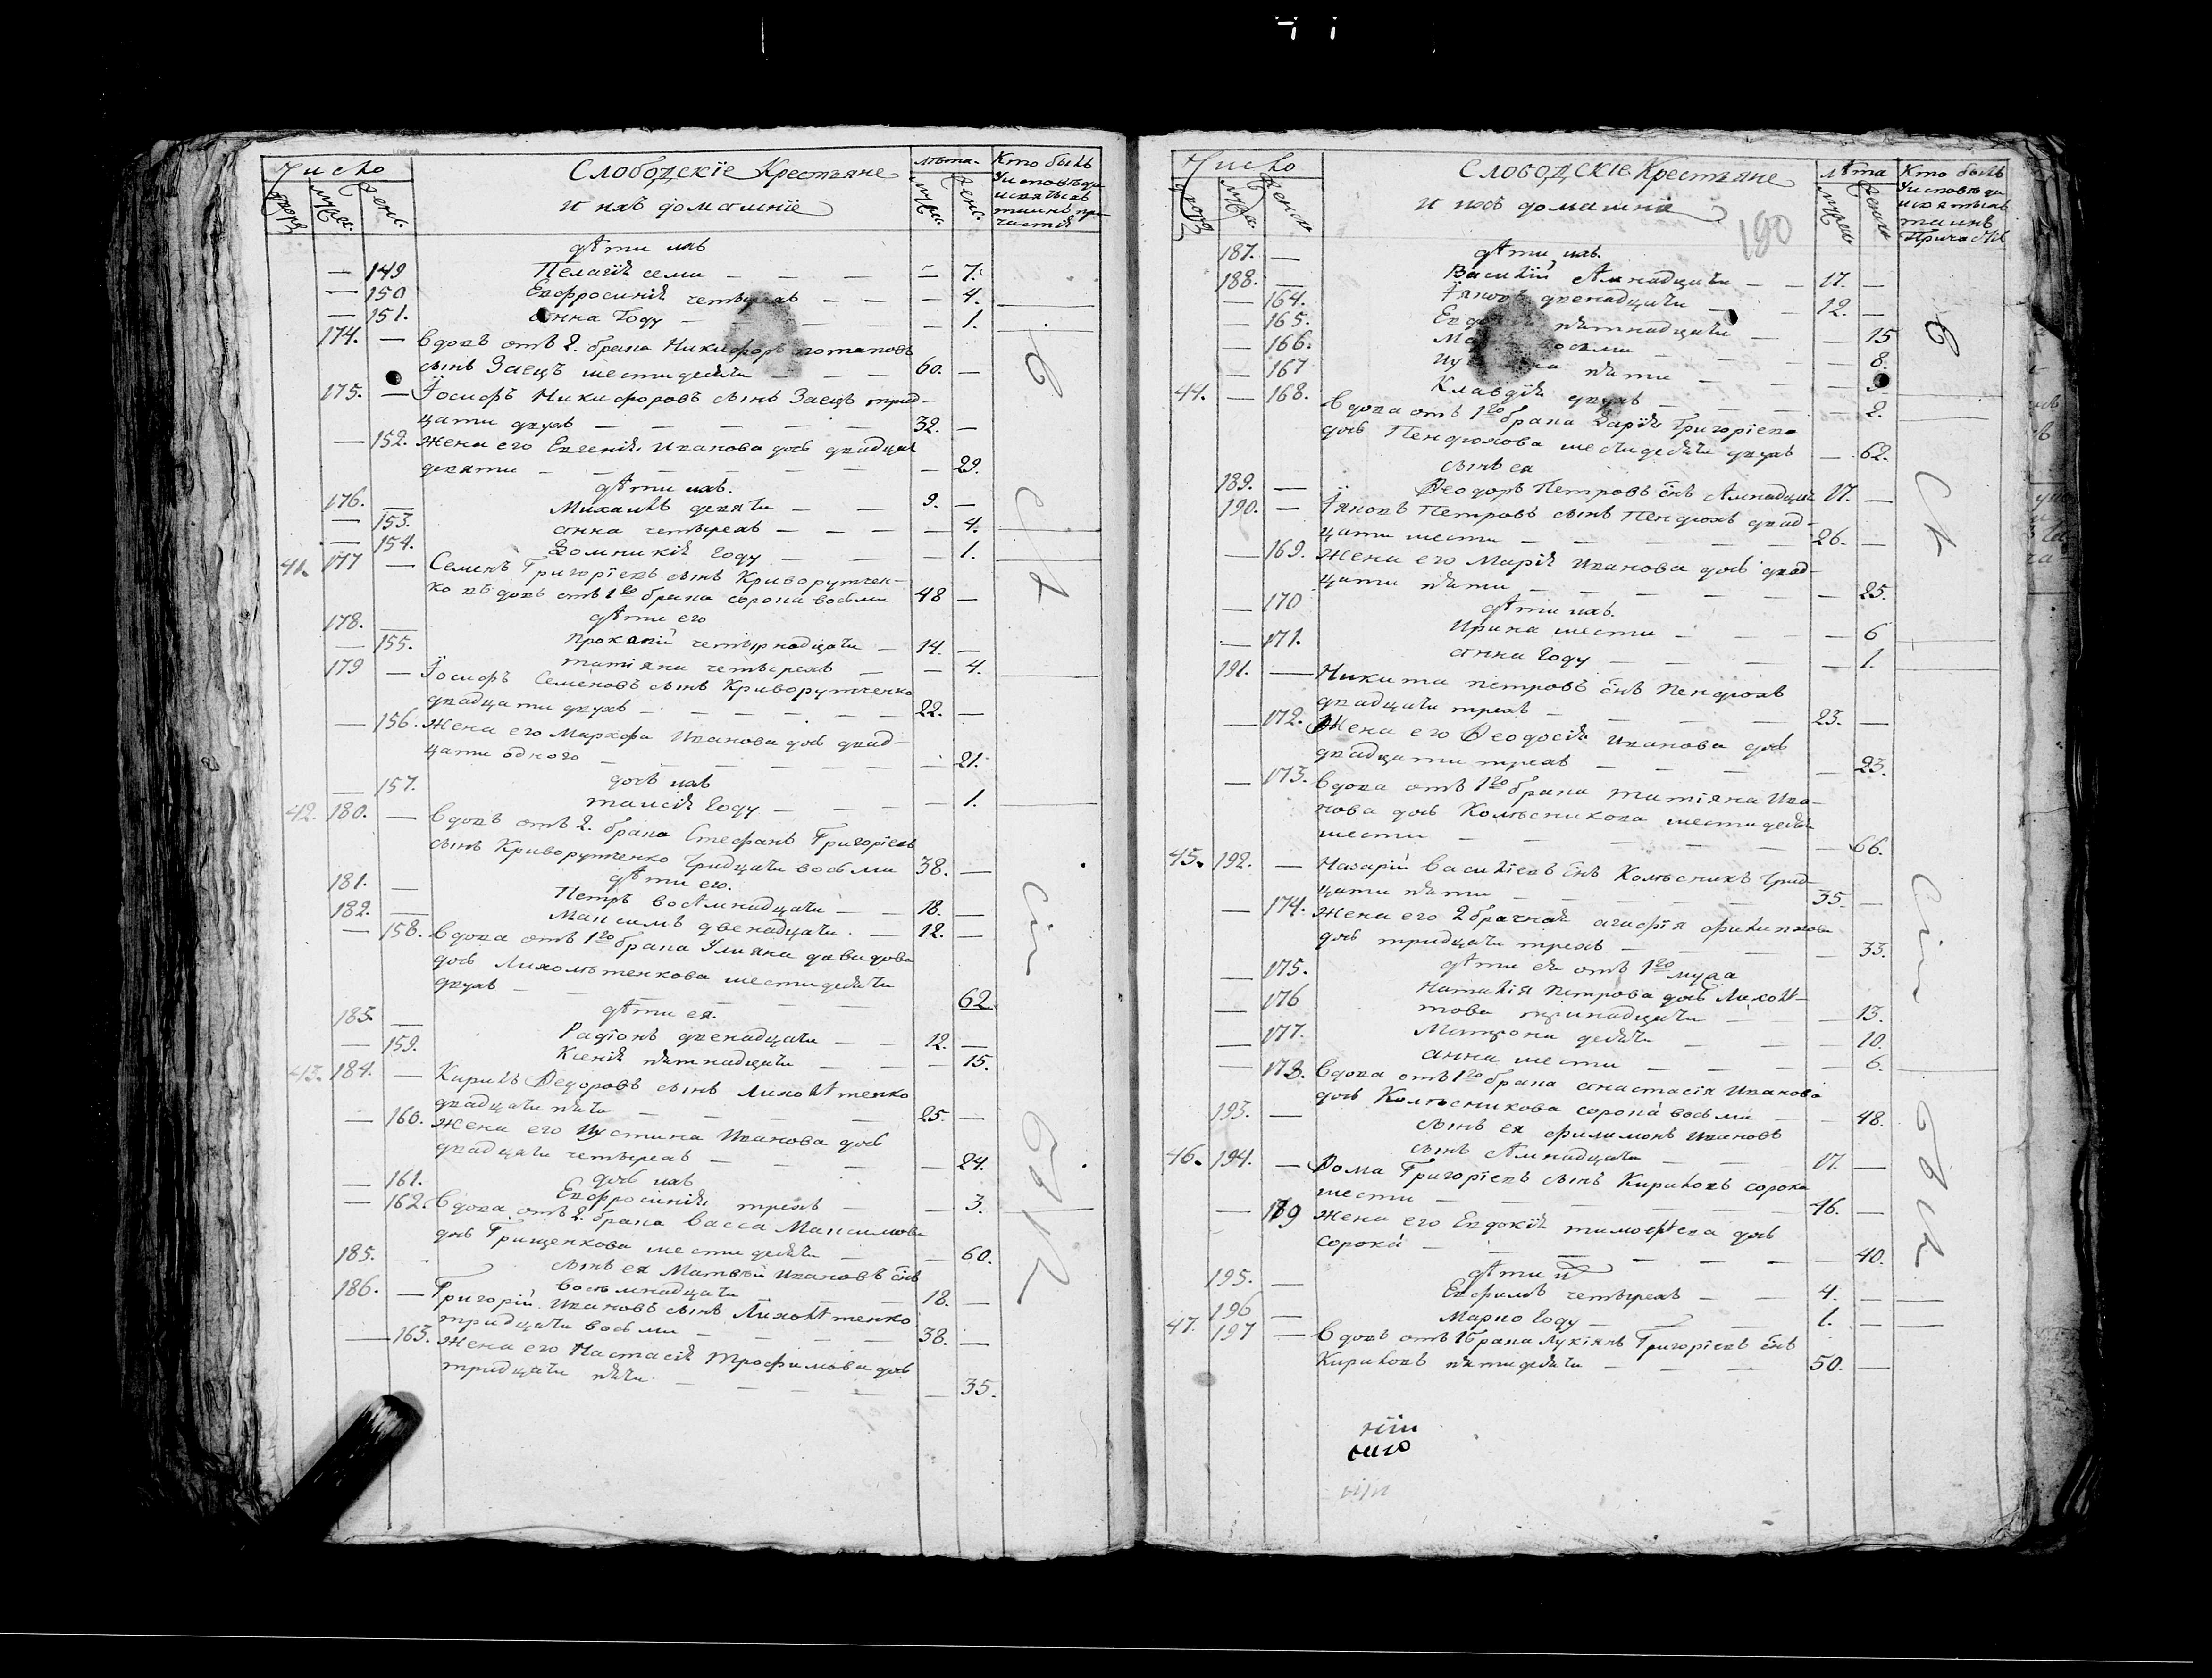 Число
Слободскїе Крестьяне
и ихъ домашнїе
лѣта
Кто былъ
У исповѣди
и святыхъ
таинъ при-
частїя
дѣти ихъ
— 149 Пелагїя семи — — — 7.
— 150 Евфросинїя четырехъ — — — 4.
— 151. анна году — — 1.
174. — вдовъ отъ 2. брака Никифоръ потаповъ
сынъ Заецъ шестидесяти — — 60. —
175. — Їосифъ Никифоровъ сынъ Заецъ трид-
цати двухъ — — — 32. —
— 152. жена его Евгенїя Иванова дочь двадцати
девяти — — — 29.
дѣти ихъ.
176. — Михаилъ девяти — — 9. —
— 153. анна четырехъ — — — 4.
— 154. Домникїя году — — — 1.
41. 177 — Семенъ Григорїевъ сынъ Криворутчен-
ко вдовъ отъ 1го брака сорока восьми 48 —
дѣти его
178. — Прокопїй четырнадцати — 14. —
— 155. татїяна четырехъ — — 4.
179 — Їосифъ Семеновъ сынъ Криворутченко
двадцати двухъ — — — 22. —
— 156. Жена его Марфа Иванова дочь двад-
цати одного — — — 21.
дочь ихъ
— 157. таисїя году — — — 1.
42. 180. — вдовъ отъ 2. брака Стефанъ Григорїевъ
сынъ Криворутченко тридцати восьми 38. —
дѣти его.
181. — Петръ восѣмнадцати — — 18. —
182. — Максимъ двенадцати. — 12. —
— 158. вдова отъ 1го брака Улияна давидова
дочь Лихолѣтенкова шестидесяти
двухъ — — — 62.
дѣти ея.
183. — Радїонъ двенадцати — — 12. —
— 159. Ксенїя пятнадцати — — — 15.
43. 184. — Кирилъ Ѳедоровъ сынъ Лихолѣтенко
двадцати пяти — — — 25. —
— 160. жена его Иустина Иванова дочь
двадцати четырехъ — — — 24.
дочь ихъ
— 161. Евфросинїя трехъ — — 3.
— 162. вдова отъ 2. брака васса Максимова
дочь Грищенкова шестидесяти — — 60.
185. сынъ ея Матвѣй Ивановъ сынъ
восемнадцати — — 18. —
186. — Григорїй Ивановъ сынъ Лихолѣтенко
тридцати восьми — 38. —
— 163. Жена его Настасїя Трофимова дочь
тридцати пяти — — — 35.
Число
Слободскїе Крестьяне
и ихъ домашнїе
лѣта
Кто былъ
У исповѣди
и святыхъ
таинъ
Причастїя
190
дѣти ихъ.
187. — Василїй — — 17. —
188. — Їяковъ двенадцати — — 12. —
— 164. пятнадцати — — 15
— 165. восьми — — 8.
— 166. пяти — —
— 167 Клавдїя двухъ — — 2.
44. — 168. вдова отъ 1го брака Дарїя Григорїева
дочь Пендюхова шестидесяти двухъ — 62.
сынъ ея
189. — Ѳеодоръ Петровъ сынъ 17. —
190. — Їяковъ Петровъ сынъ Пендюхъ двад-
цати шести — — — 26. —
— 169. Жена его Марїя Иванова дочь двад-
цати пяти — — — 25.
дѣти ихъ.
— 170 Ирина шести — — — 6
— 171. анна году — — — 1.
191. — Никита петровъ сынъ Пендюхъ
двадцати трехъ — — — 23. —
— 172. Жена его Ѳеодосїя Иванова дочь
двадцати трехъ — — — 23.
— 173. вдова отъ 1го брака татїяна Ива-
нова дочь Колѣсникова шестидесяти
шести — — — 66.
45. 192. — Назарїй василїевъ сынъ Колѣсникъ трид-
цати пяти — — — 35. —
— 174. Жена его 2брачная агафїя филипова
дочь тридцати трехъ — — 33.
дѣти ея отъ 1го мужа
— 175. Наталїя петрова дочь Лихолѣ-
това тринадцати — — 13.
— 176 Матрона десяти — — 10.
— 177. анна шести — — — 6.
— 178. вдова отъ 1го брака анастасїя Иванова
дочь Колѣсникова сорока восьми — — 48.
193. — сынъ ея филимонъ Ивановъ
сынъ — — 17. —
46. 194. — Ѳома Григорїевъ сынъ Кириловъ сорока
шести — — — 46. —
— 179 Жена его Евдокїя тимоѳѣева дочь
сорока — — — 40.
дѣти
195. — Евфимъ четырехъ — — 4. —
196 — Марко году — — — 1. —
47. 197 — вдовъ отъ 1 брака Лукїянъ Григорїевъ сынъ
Кириловъ пятидесяти — — 50. —